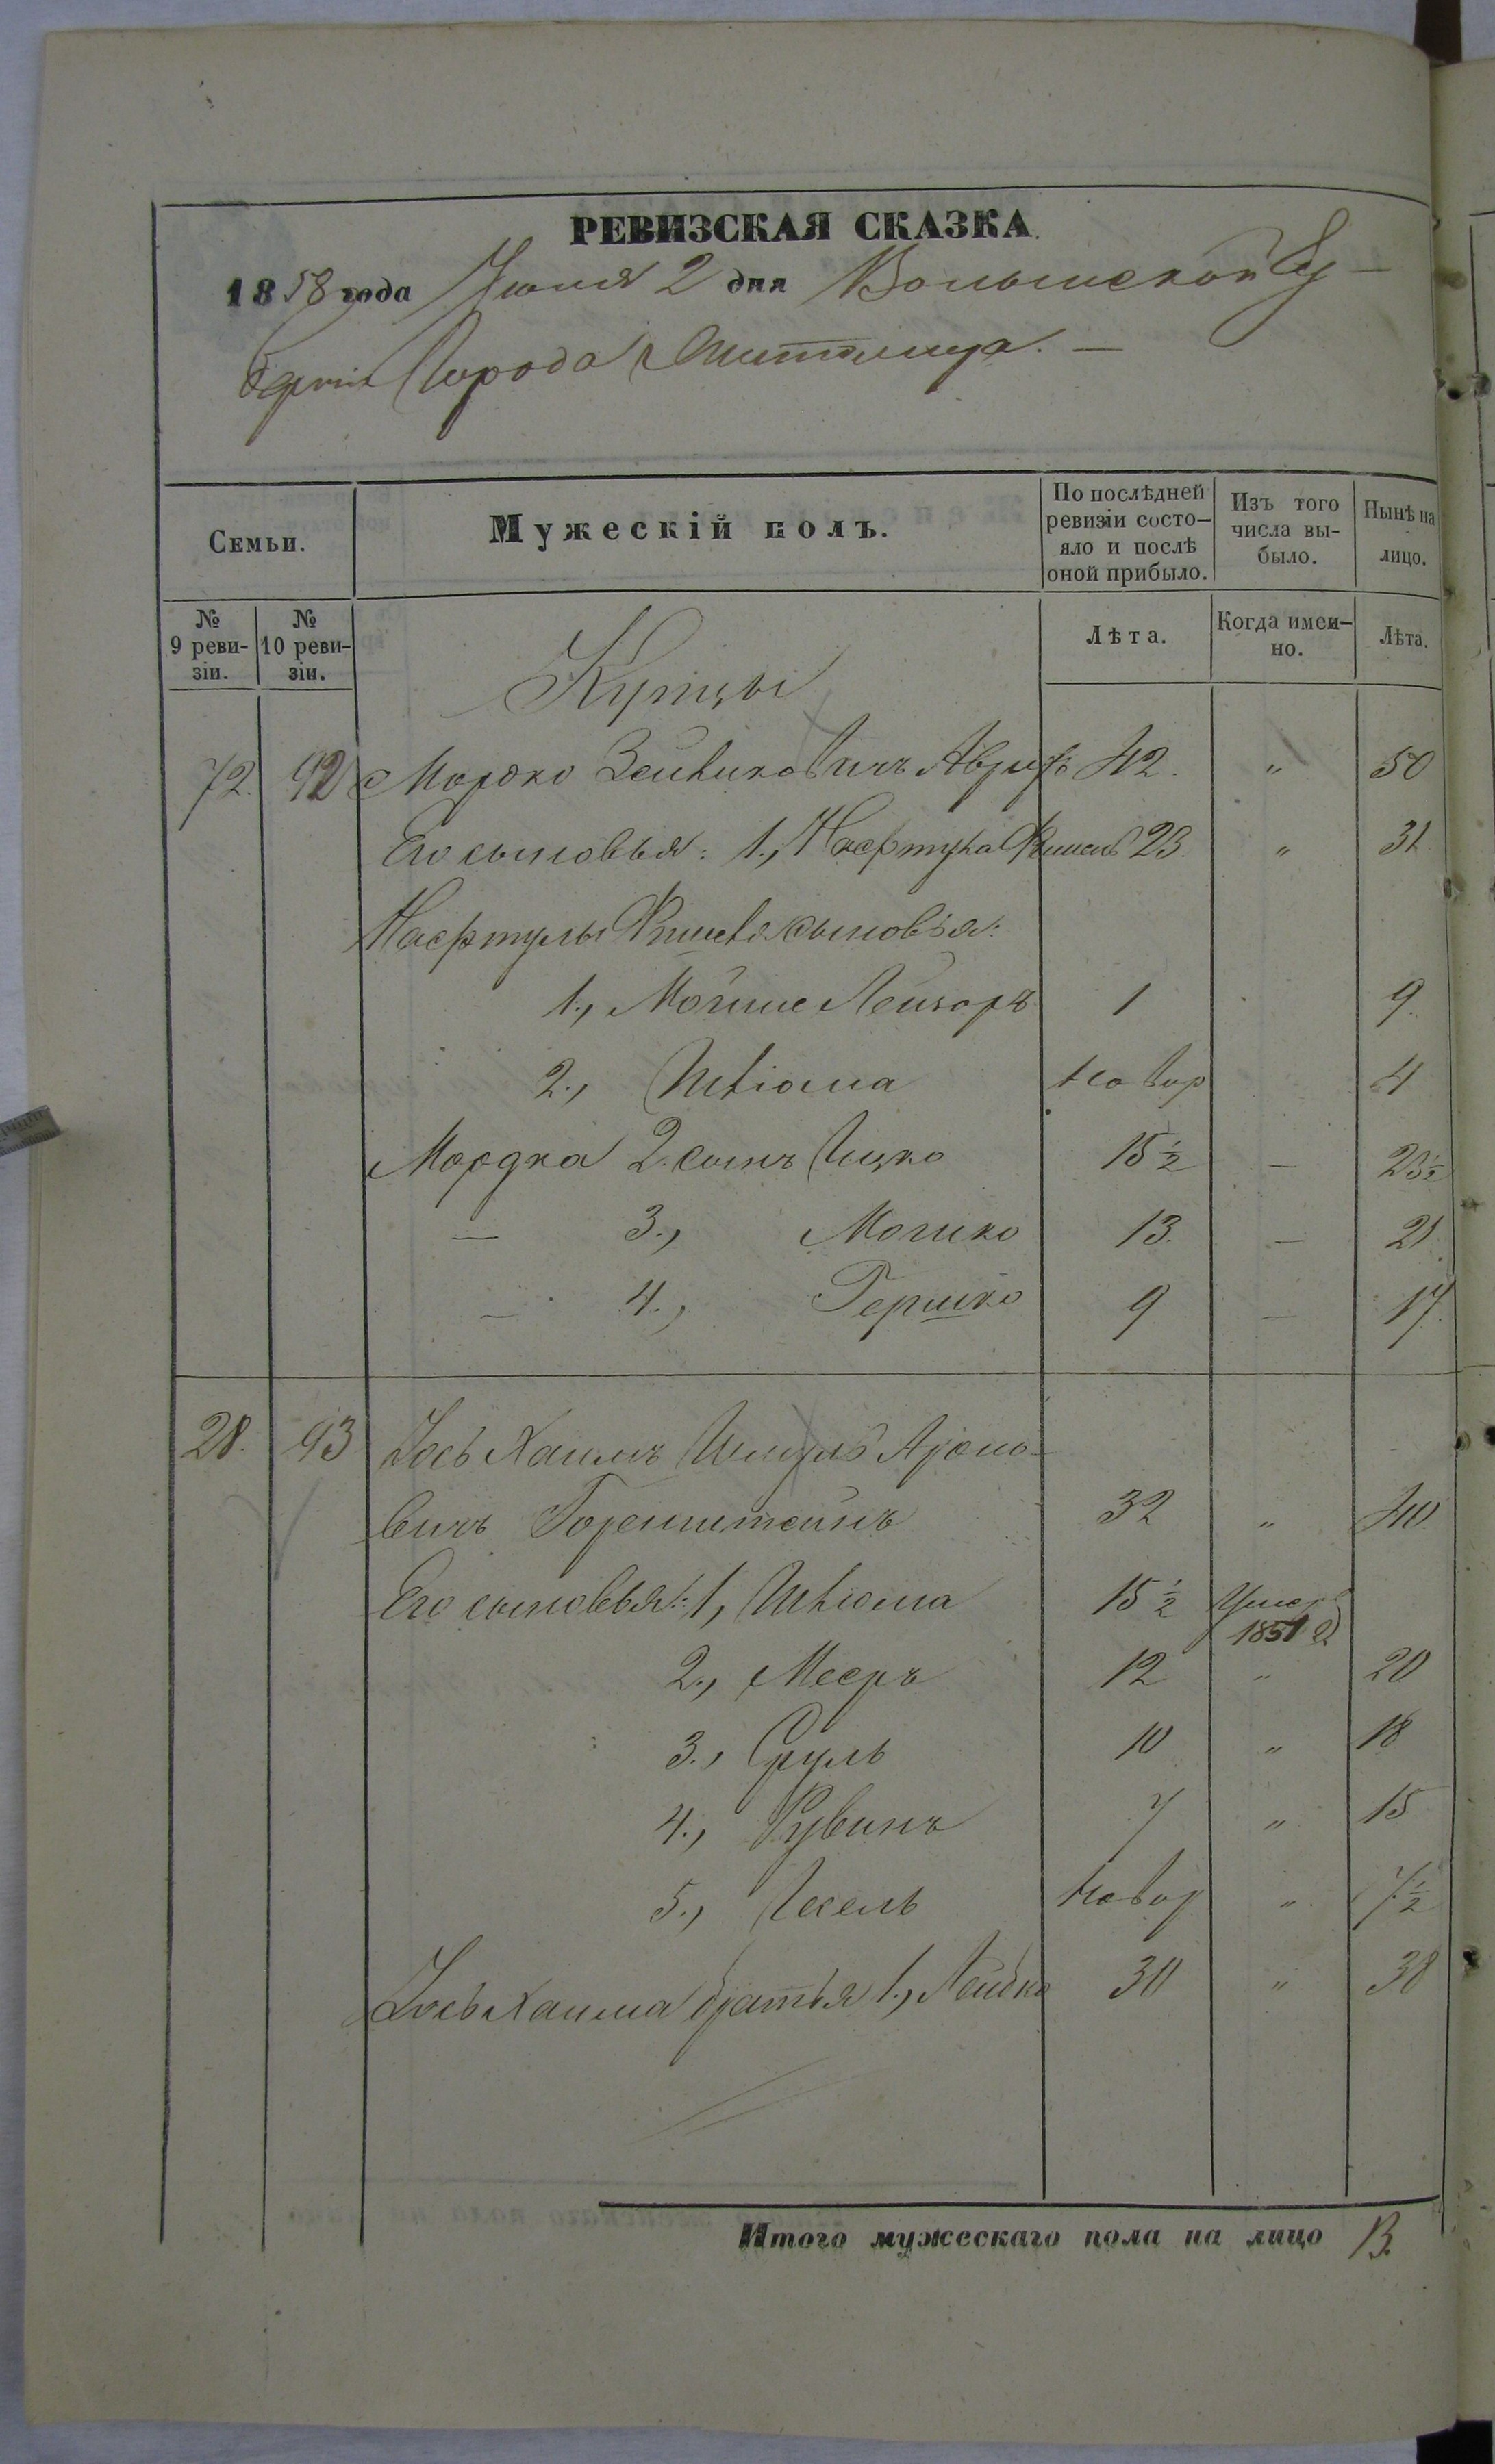 РЕВИЗСКАЯ СКАЗКА.
1858 года Іюня 2 дня Волынской Гу-
берніи Города Житомира. —
Семьи.
Мужескій полъ.
По послѣдней ревизіи состо-яло и послѣ оной прибыло.
Изъ того числа вы-было.
Нынѣ на лицо.
№ 9 реви-зіи.
№ 10 реви-зіи.
Лѣта.
Когда имен-но.
Лѣта.
Купцы
72. 92 Мордко Зейликовичъ 42. " 50
Его сыновья: 1., Фишель 23. " 31
Фишеля сыновья:
1., Мойше Лейзоръ 1 9.
2., Шліома новор 4
Мордка 2. сынъ Ицко 15 1/2 — 23 1/2
— 3., Мошко 13. — 21
— 4., Гершко 9 — 17.
28. 93 Іось Хаимъ Шмуль Ароно-
вичъ Горенштейнъ 32 " 40
Его сыновья: 1, Шліома 15 1/2 Умеръ 1851
2., Мееръ 12 " 20
3., Сруль 10 " 18
4., Рувинъ 7 " 15
5., Іосель новор " 7 1/2
Іось Хаима братья 1., Лейбко 30 " 38
Итого мужескаго пола на лицо 13.